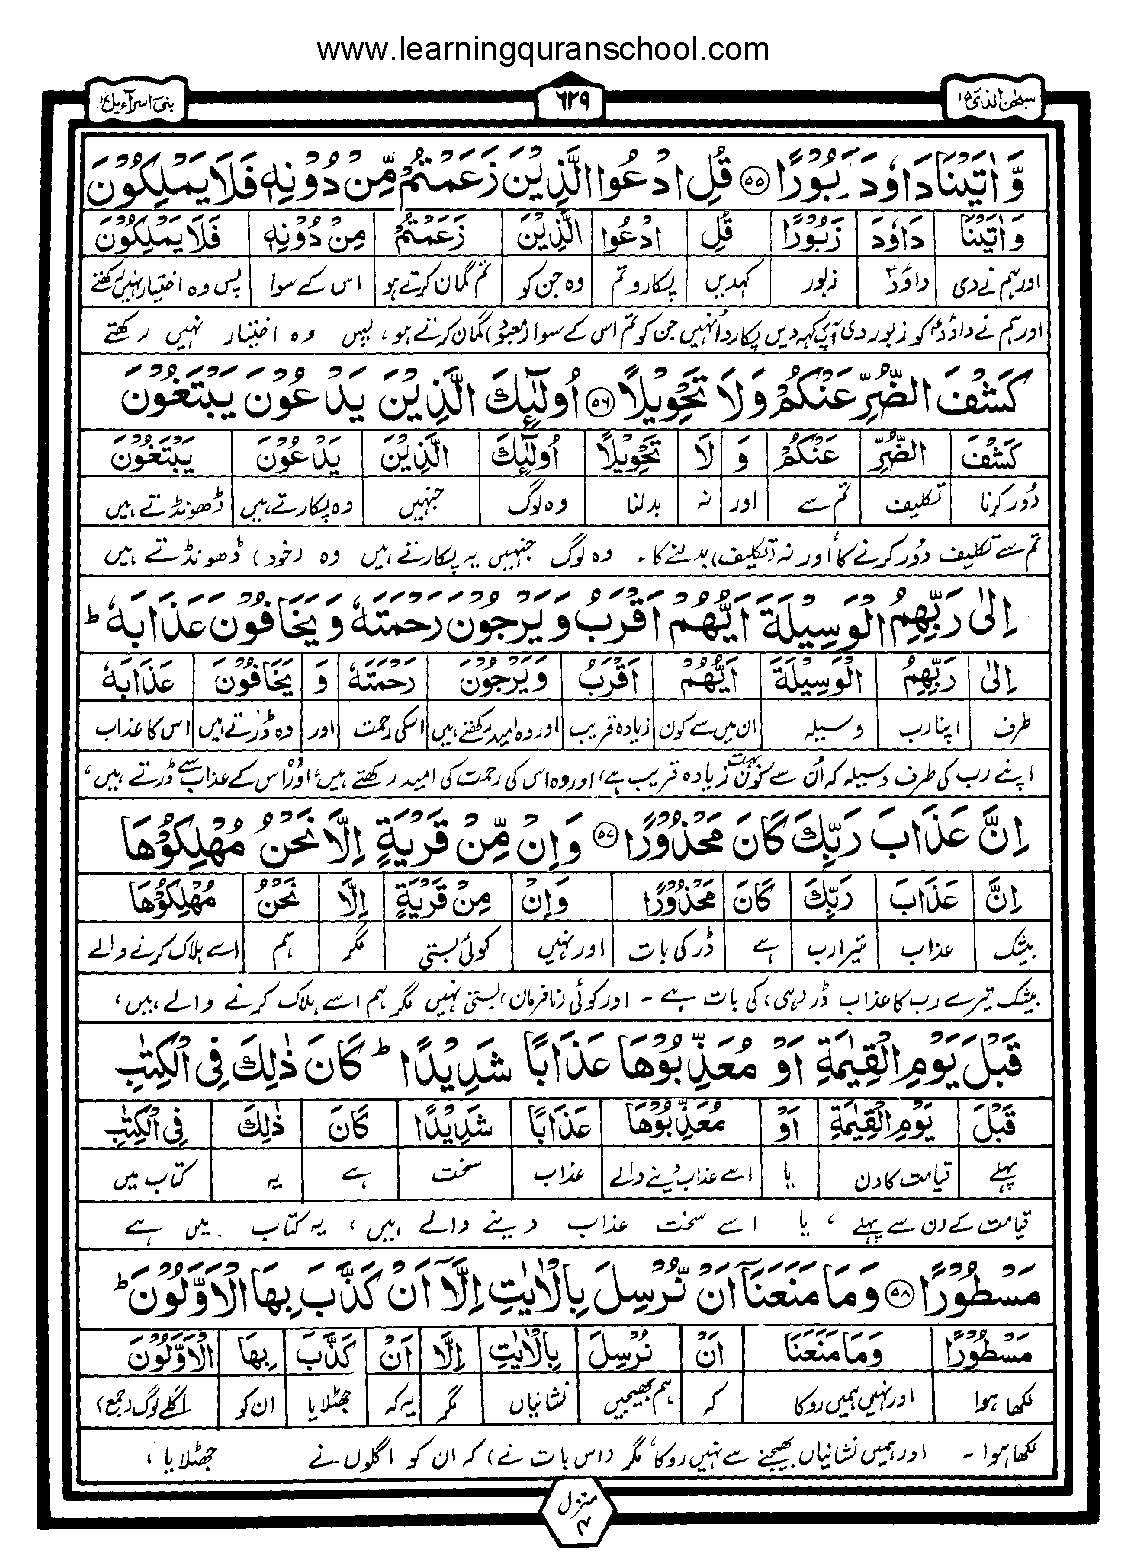 www.learningquranschool.com
سبحٰن الذی ١٥
٦٢٩
بنی اسرآءیل ١٧
وَّاٰتَيْنَا دَاوٗدَ زَبُوْرًا ۝٥٥ قُلِ ادْعُوا الَّذِيْنَ زَعَمْتُمْ مِّنْ دُوْنِهٖ فَلَا يَمْلِكُوْنَ
وَّاٰتَيْنَا دَاوٗدَ زَبُوْرًا قُلِ ادْعُوا الَّذِيْنَ زَعَمْتُمْ مِنْ دُوْنِهٖ فَلَا يَمْلِكُوْنَ
اور ہم نے دی داوٗدؑ زبور کہدیں پکارو تم وہ جن کو تم گمان کرتے ہو اس کے سوا پس وہ اختیار نہیں رکھتے
اور ہم نے داوٗدؑ کو زبور دی آپؐ کہہ دیں پکارو انہیں جن کو تم اس کے سوا (معبود) گمان کرتے ہو، پس وہ اختیار نہیں رکھتے
كَشْفَ الضُّرِّ عَنْكُمْ وَلَا تَحْوِيْلًا ۝٥٦ اُولٰٓئِكَ الَّذِيْنَ يَدْعُوْنَ يَبْتَغُوْنَ
كَشْفَ الضُّرِّ عَنْكُمْ وَ لَا تَحْوِيْلًا اُولٰٓئِكَ الَّذِيْنَ يَدْعُوْنَ يَبْتَغُوْنَ
دُور کرنا تکلیف تم سے اور نہ بدلنا وہ لوگ جنہیں وہ پکارتے ہیں ڈھونڈتے ہیں
تم سے تکلیف دُور کرنے کا اور نہ (تکلیف) بدلنے کا۔ وہ لوگ جنہیں یہ پکارتے ہیں وہ (خود) ڈھونڈتے ہیں
اِلٰى رَبِّهِمُ الْوَسِيْلَةَ اَيُّهُمْ اَقْرَبُ وَيَرْجُوْنَ رَحْمَتَهٗ وَيَخَافُوْنَ عَذَابَهٗ ؕ
اِلٰى رَبِّهِمُ الْوَسِيْلَةَ اَيُّهُمْ اَقْرَبُ وَيَرْجُوْنَ رَحْمَتَهٗ وَ يَخَافُوْنَ عَذَابَهٗ
طرف اپنا رب وسیلہ ان میں سے کون زیادہ قریب اور وہ امید رکھتے ہیں اسکی رحمت اور وہ ڈرتے ہیں اس کا عذاب
اپنے رب کی طرف وسیلہ کہ اُن سے کون زیادہ قریب ہے، اور وہ اس کی رحمت کی امید رکھتے ہیں، اور اس کے عذاب سے ڈرتے ہیں،
اِنَّ عَذَابَ رَبِّكَ كَانَ مَحْذُوْرًا ۝٥٧ وَاِنْ مِّنْ قَرْيَةٍ اِلَّا نَحْنُ مُهْلِكُوْهَا
اِنَّ عَذَابَ رَبِّكَ كَانَ مَحْذُوْرًا وَاِنْ مِنْ قَرْيَةٍ اِلَّا نَحْنُ مُهْلِكُوْهَا
بیشک عذاب تیرا رب ہے ڈر کی بات اور نہیں کوئی بستی مگر ہم اسے ہلاک کرنے والے
بیشک تیرے رب کا عذاب ڈر (ہی) کی بات ہے - اور کوئی (نافرمان) بستی نہیں مگر ہم اسے ہلاک کرنے والے ہیں،
قَبْلَ يَوْمِ الْقِيٰمَةِ اَوْ مُعَذِّبُوْهَا عَذَابًا شَدِيْدًا ؕ كَانَ ذٰلِكَ فِى الْكِتٰبِ
قَبْلَ يَوْمِ الْقِيٰمَةِ اَوْ مُعَذِّبُوْهَا عَذَابًا شَدِيْدًا كَانَ ذٰلِكَ فِى الْكِتٰبِ
پہلے قیامت کا دن یا اسے عذاب دینے والے عذاب سخت ہے یہ کتاب میں
قیامت کے دن سے پہلے، یا اسے سخت عذاب دینے والے ہیں، یہ کتاب میں ہے
مَسْطُوْرًا ۝٥٨ وَمَا مَنَعَنَاۤ اَنْ نُّرْسِلَ بِالْاٰيٰتِ اِلَّاۤ اَنْ كَذَّبَ بِهَا الْاَوَّلُوْنَ ؕ
مَسْطُوْرًا وَمَا مَنَعَنَا اَنْ نُرْسِلَ بِالْاٰيٰتِ اِلَّا اَنْ كَذَّبَ بِهَا الْاَوَّلُوْنَ
لکھا ہوا اور نہیں ہمیں روکا کہ ہم بھیجیں نشانیاں مگر یہ کہ جھٹلایا ان کو اگلے لوگ (جمع)
لکھا ہوا - اور ہمیں نشانیاں بھیجنے سے نہیں روکا مگر (اس بات نے) کہ ان کو اگلوں نے جھٹلایا،
منزل ٤